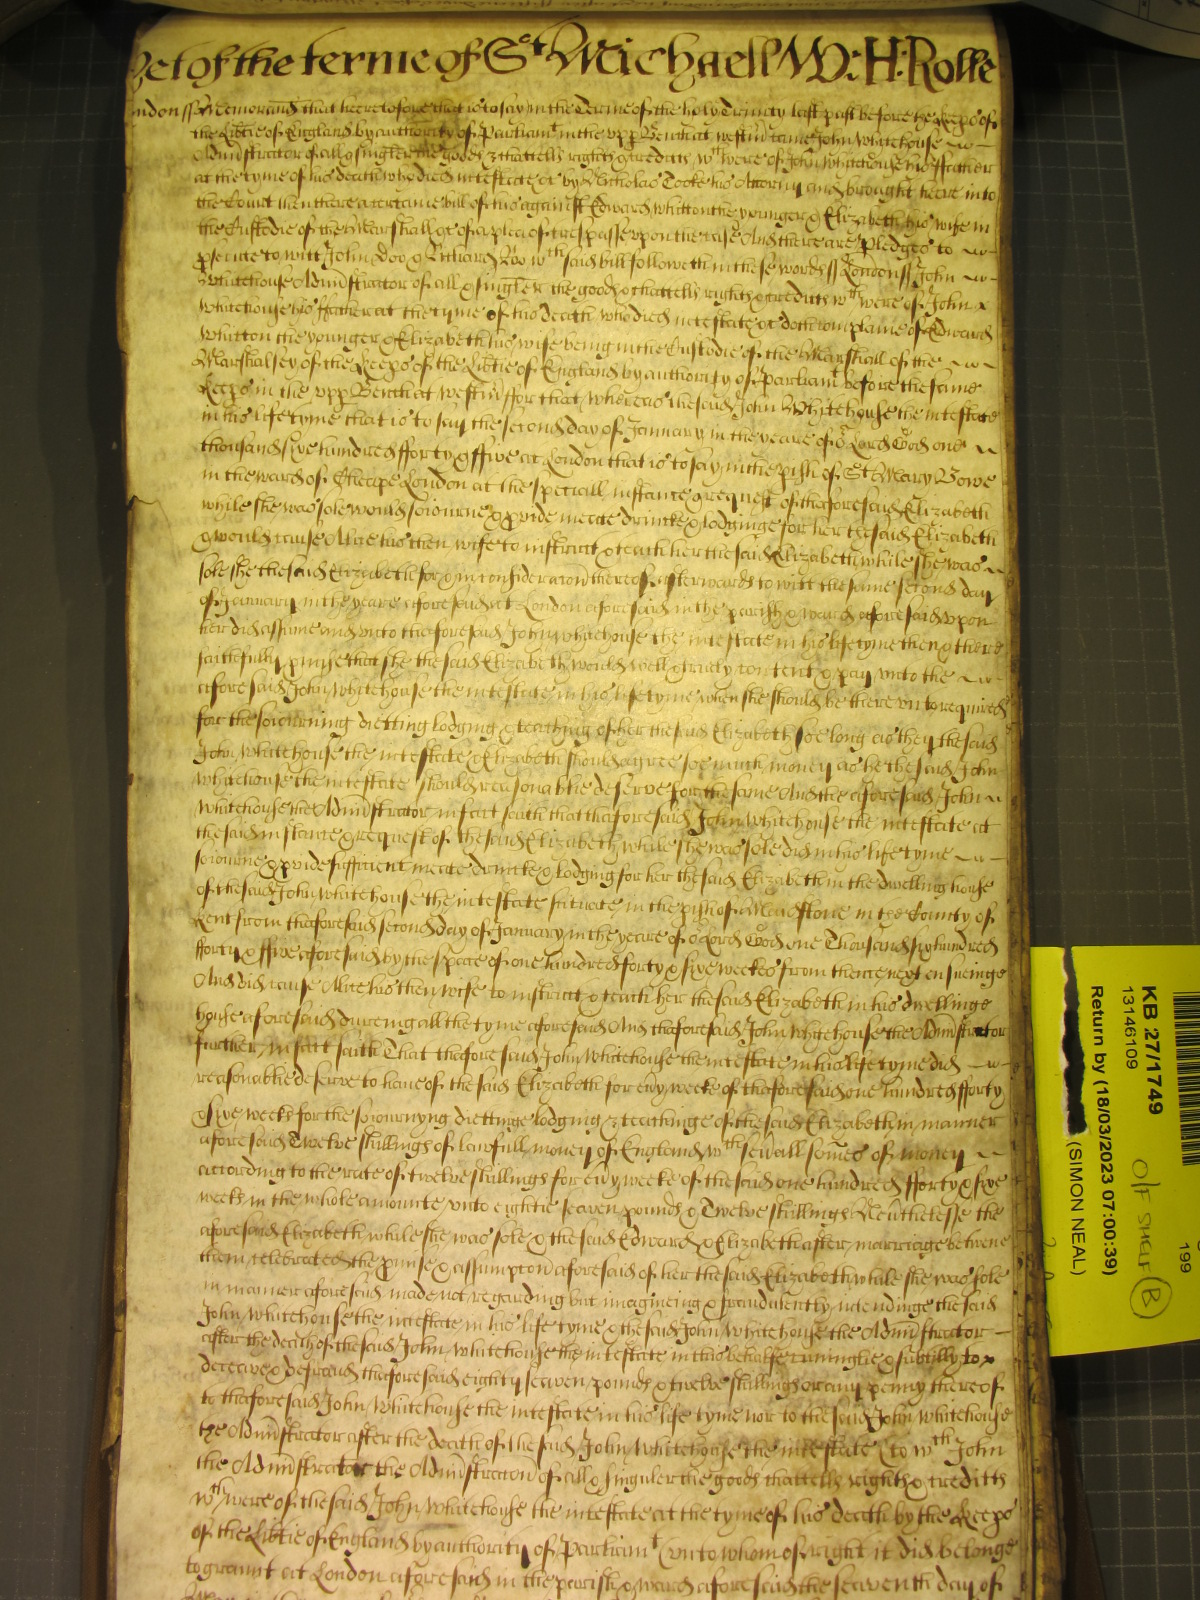 Yet of the terme of St Michaell W: H: Rolle
ondon ss Memorand that heretofore that is to say in the Terme of the holy Trinity last past before the Keeps of
the Libtie of England by authority of Parliamt in the upp Bench at Westm came John Whitehouse
Adminstrator of all & singler the goods & chattells rights & credits wch were of John Whitehouse his ffather
at the tyme of his death who died intestate &c by Nicholas Cooke his Attorny and brought heere into
the Court then there a certaine bill of his against Edward Whitton the younger & Elizabeth his wife in
the Custodie of the Marshall &c of a plea of trespasse upon the case And there are Pledges to
psecute to witt John Doo & Richard Roo wch said bill followeth in these words ss London ss John
Whitehouse Adminstrator of all & singler the goods & chattells rights & credits wch were of John
Whitehouse his ffather at the tyme of his death who died intestate &c doth complaine of Edward
Whitton the younger & Elizabeth his wife being in the Custodie of the Marshall of the
Marshalsey of the Keeps of the Libtie of England by authority of Parliamt before the same
Keeps in the upp Bench at Westm ffor that whereas the said John Whitehouse the intestate
in his life tyme that is to say the second day of January in the yeare of or Lord God one
thousand sixe hundred fforty & ffive at London that is to say in the pish of St Mary Bowe
in the ward of Cheape London at the speciall instance & request of thaforesaid Elizabeth
while she was sole would soiourne & pvide meate drincke & lodginge for her the said Elizabeth
& would cause Alice his then wife to instruct & teach her the said Elizabeth while she was
sole she the said Elizabeth for & in consideracon thereof afterwards to witt the same second day
of January in the yeare aforesaid at London aforesaid in the parish & ward aforesaid upon
her did assume and unto thaforesaid John Whitehouse the intestate in his life tyme then & there
faithfully pmise that she the said Elizabeth would well & truely content & pay unto the
aforesaid John Whitehouse the intestate in his life tyme when she should be there unto required
for the soiourning dietting lodging & teaching of her the said Elizabeth soe long as they the said
John Whitehouse the intestate & Elizabeth should agree soe much money as he the said John
Whitehouse the intestate should reasonablie deserve for the same And the aforesaid John
Whitehouse the Adminstrator in fact saith that thaforesaid John Whitehouse the intestate at
the said instance & request of the said Elizabeth while she was sole did in his life tyme
soiourne & pvide sufficient meate drincke & lodging for her the said Elizabeth in the dwelling house
of the said John Whitehouse the intestate scituate in the pish of Maidstone in the County of
Kent from thaforesaid second day of January in the yeare of or Lord God one Thousand six hundred
fforty & ffive aforesaid by the space of one hundred forty & sixe weekes from thence next ensueinge
And did cause Alice his then wife to instruct & teach her the said Elizabeth in his dwellinge
house aforesaid dureing all the tyme aforesaid And thaforesaid John Whitehouse the Adminstrator
further in fact saith That thaforesaid John Whitehouse the intestate in his life tyme did
reasonablie deserve to have of the said Elizabeth for evy weeke of thaforesaid one hundred fforty
& sixe weeks for the soiournyng diettinge lodging & teachinge of the said Elizabeth in manner
aforesaid Twelve shillings of lawfull money of England wch sevall somes of money
according to the rate of twelve shillings for evy weeke of the said one hundred fforty & sixe
weeks in the whole amounte unto eightie seaven pounds & Twelve shillings Nevthelesse the
aforesaid Elizabeth while she was sole & the said Edward & Elizabeth after marriage betwene
them celebrated the pmise & assumpton aforesaid of her the said Elizabeth while she was sole
in manner aforesaid made not regarding but imagineing & fraudulently intendinge the said
John Whitehouse the intestate in his life tyme & the said John Whitehouse the Adminstrator
after the death of the said John Whitehouse the intestate in this behalfe cuninglie & subtilly to
deceive & defraud thaforesaid eighty seaven pounds & twelve shillings or any penny thereof
to thaforesaid John Whitehouse the intestate in his life tyme nor to the said John Whitehouse
the Adminstrator after the death of the said John Whitehouse the intestate (to wch John
the Adminstrator the Adminstracon of all & singuler the goods chattells rights & creditts
wch were of the said John Whitehouse the intestate at the tyme of his death by the Keeps
of the Libtie of England by authority of Parliamt (unto whom of right it did belonge
to graunt at London aforesaid in the parish & ward aforesaid the seaventh day of
KB 27/1749
13146109
Return by (18/03/2023 07:00:39)
(SIMON NEAL)
O/F SHELF B
199